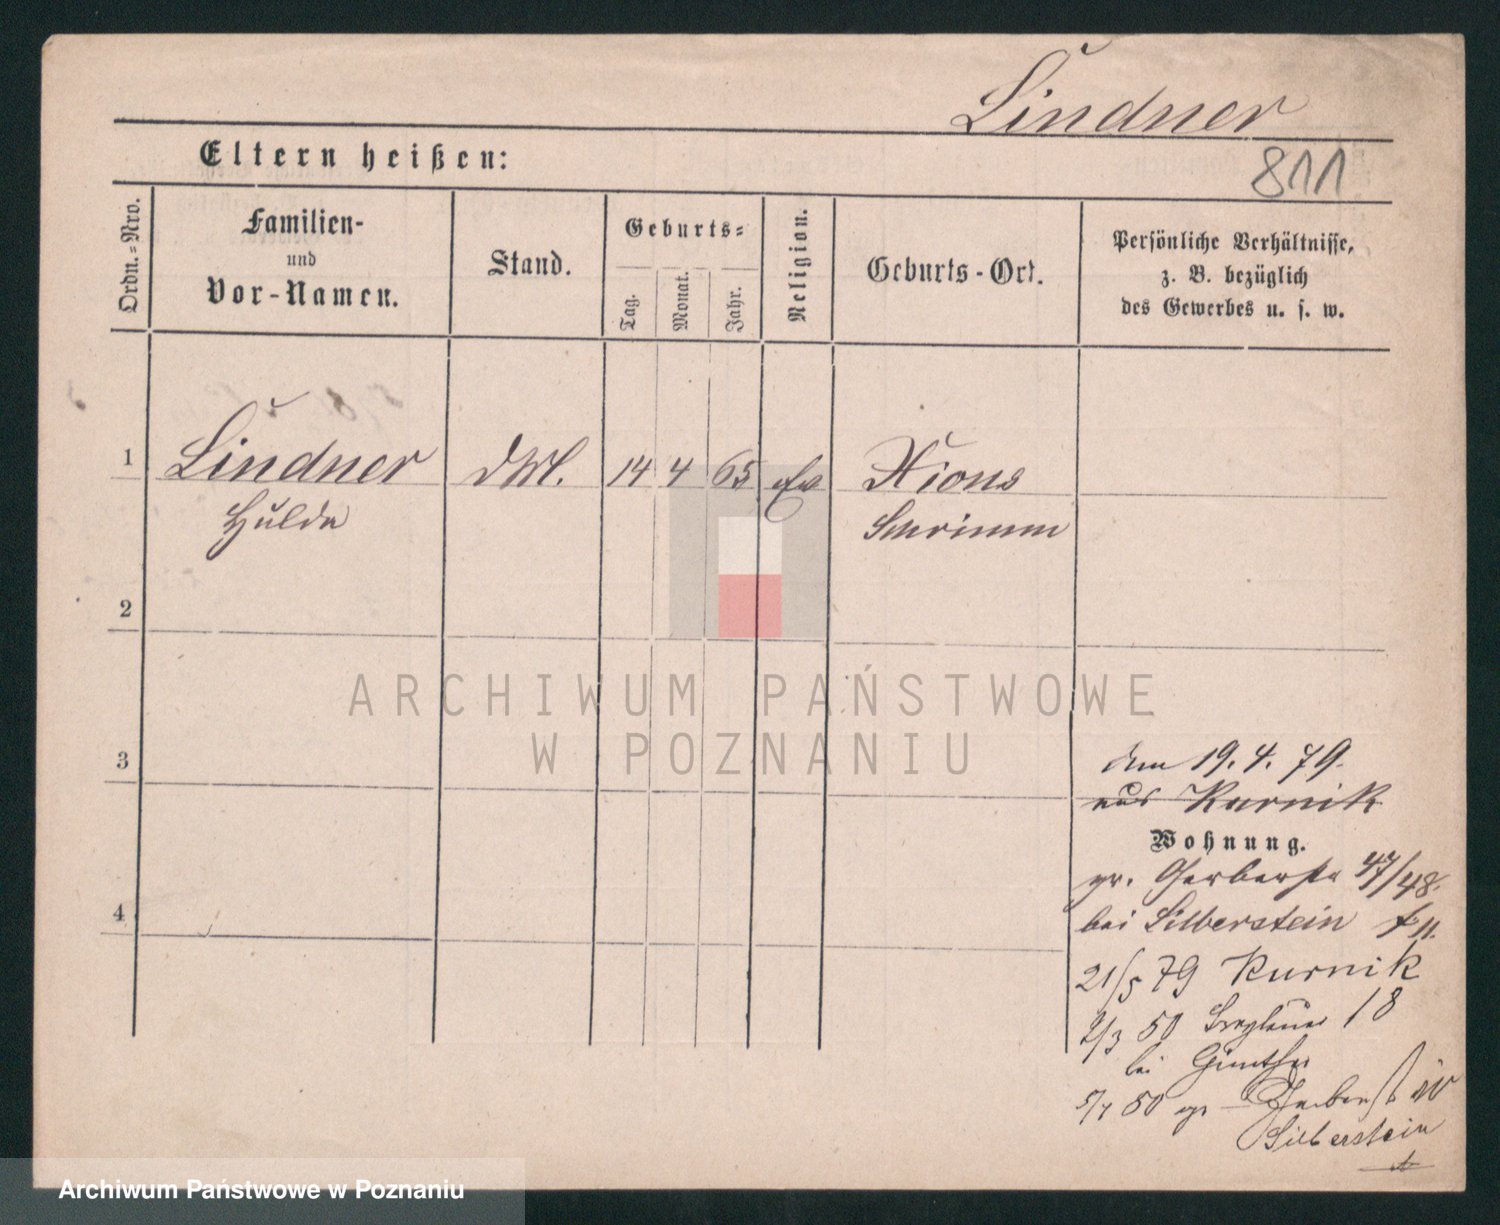 Lindner
811
Eltern heißen:
Ordn.-Nro.
Familien-
und
Vor-Namen.
Stand.
Geburts-
Tag.
Monat.
Jahr.
Religion.
Geburts-Ort.
Persönliche Verhältnisse,
z. B. bezüglich
des Gewerbes u. s. w.
1 Lindner 14 4 65 Ev Xions
Hulda Schrimm
2
ARCHIWUM PAŃSTWOWE
W POZNANIU
3
den 19. 4. 79.
aus Kurnik
Wohnung.
gr. Gerberstr 47/48.
4
bei Silberstein
21/5 79 Kurnik
2/3 80 Breslauer 18
bei Günther
80 gr Gerberst
Silberstein
Archiwum Państwowe w Poznaniu